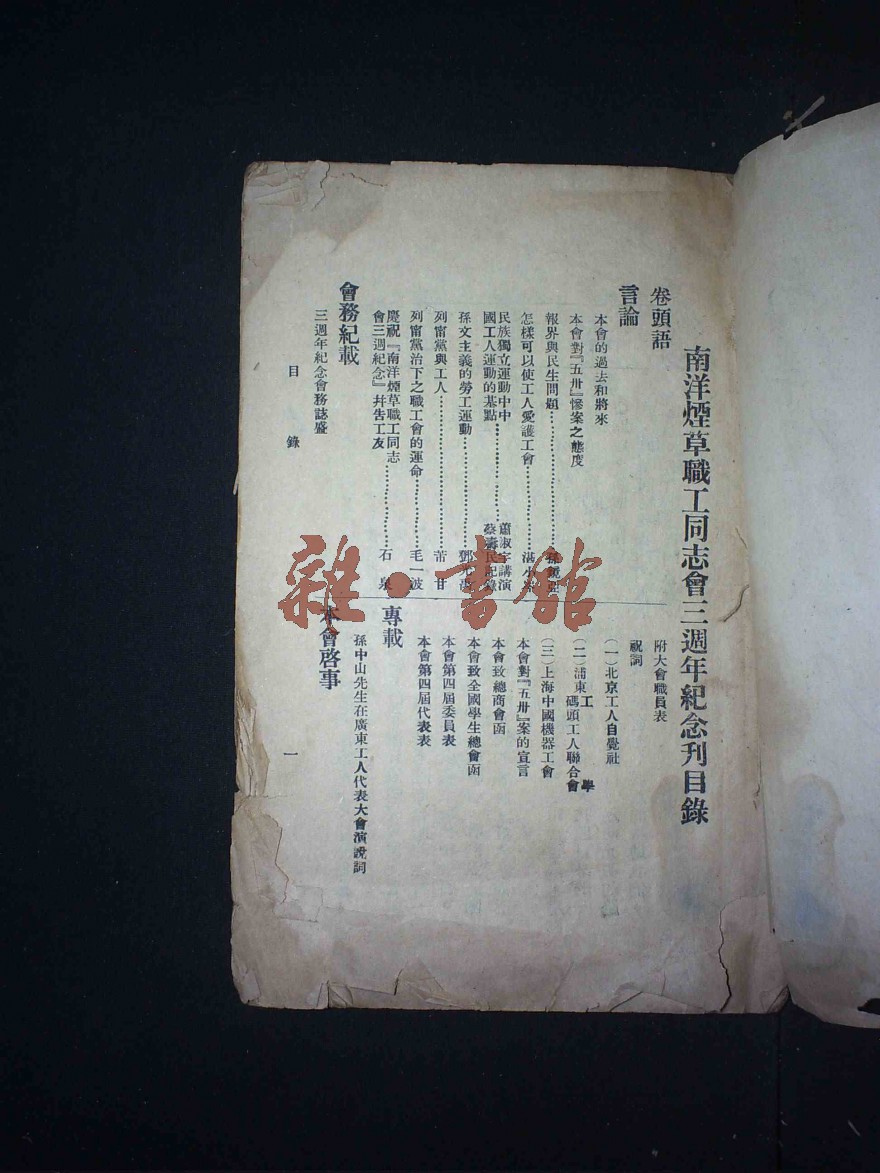 南洋煙草職工同志會三週年紀念刊目錄
卷頭語
言論
本會的過去和將來
本會對『五卅』慘案之態度
報界與民生問題…………孫鏡亞
怎樣可以使工人愛護工會…………湛小
民族獨立運動中中國工人運動的基點…………蕭淑宇講演 蔡壽民記錄
孫文主義的勞工運動…………鄧光
列甯黨與工人…………芾甘
列甯黨治下之職工會的運命…………毛一波
慶祝『南洋煙草職工同志會三週紀念』幷告工友…………石泉
會務紀載
三週年紀念會務誌盛
附大會職員表
祝詞
(一)北京工人自覺社
(二)浦東工學 碼頭工人聯合會
(三)上海中國機器工會
本會對『五卅』案的宣言
本會致總商會函
本會致全國學生總會函
本會第四屆委員表
本會第四屆代表表
專載
孫中山先生在廣東工人代表大會演說詞
本會啓事
目錄
一
雜·書館